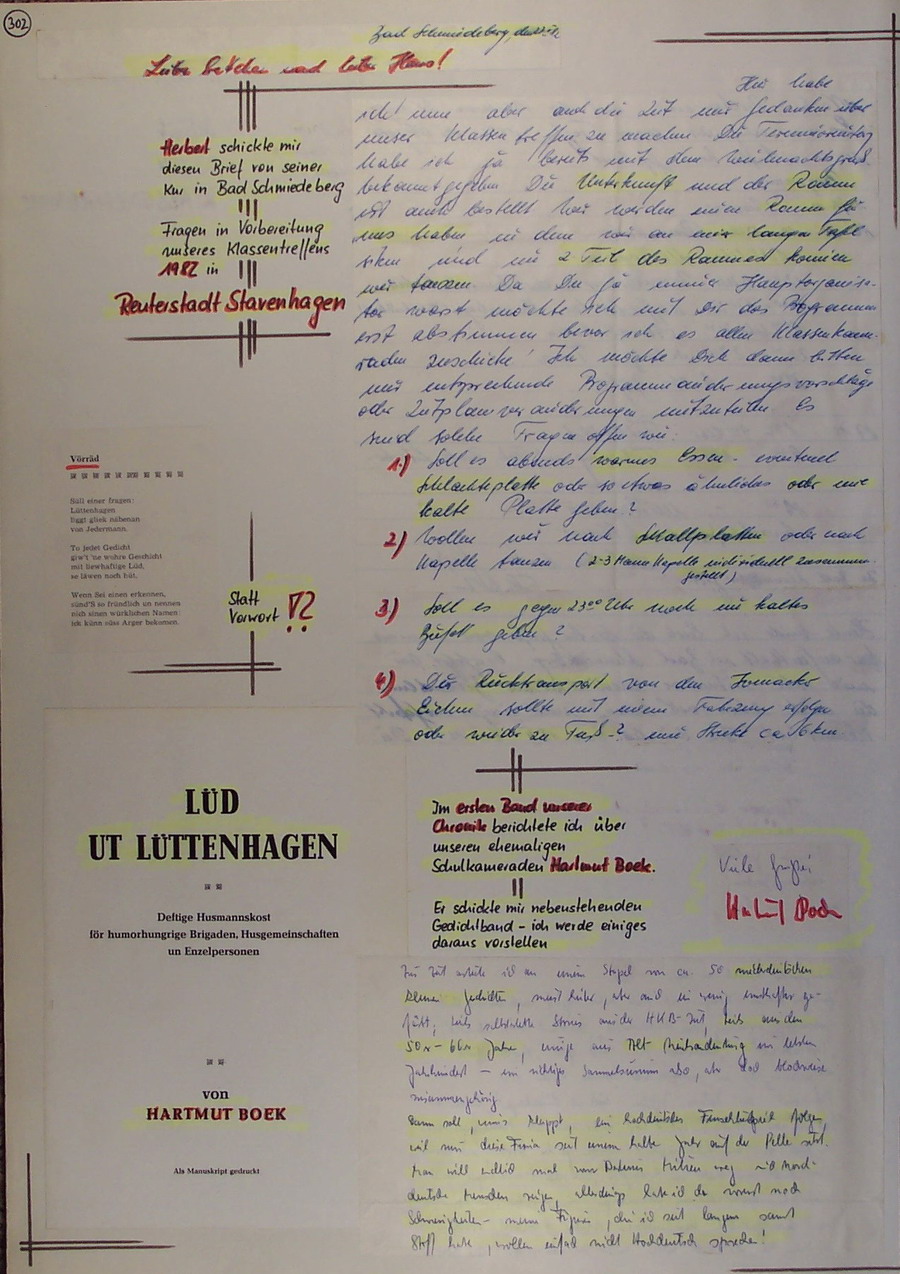 302
Bad Schmiedeberg, den
Liebes Gretchen und lieber Hans!
Herbert schickte mir
diesen Brief von seiner
Kur in Bad Schmiedeberg
Fragen in Vorbereitung
unseres Klassentreffens
1982 in
Reuterstadt Stavenhagen
Hier habe
ich nun aber auch die Zeit mir Gedanken über
unser Klassentreffen zu machen. Die Terminierung
habe ich ja bereits mit dem Weihnachtsgruß
bekanntgegeben Die Unterkunft und der Raum
ist auch bestellt Wir werden einen Raum für
uns haben in dem wir an einer langen Tafel
sitzen und im 2 Teil des Raumes können
wir tanzen Da Du ja immer Hauptorganisa-
tor warst möchte ich mit Dir das Programm
erst abstimmen bevor ich es allen Klassenkame-
raden zuschicke! Ich möchte Dich dann bitten
mir entsprechende Programmänderungsvorschläge
oder Zeitplanveränderungen mitzuteilen Es
sind solche Fragen offen wie:
1.) Soll es abends warmes Essen - eventuell
Schlachteplatte oder so etwas ähnliches oder eine
kalte Platte geben?
2) Wollen wir nach Schallplatten oder nach
Kapelle tanzen (2-3 Mann Kapelle individuell zusammen-
gestellt)
3) Soll es gegen 23⁰⁰ Uhr noch ein kaltes
Büfett geben?
4) Der Rücktransport von den Ivenacker
Eichen sollte mit einem Fahrzeug erfolgen
oder wieder zu Fuß-? eine Strecke ca 6 km
Vörräd
Süll einer fragen:
Lüttenhagen
liggt gliek näbenan
von Jedermann.
To jedet Gedicht
giw't 'ne wohre Geschicht
mit liewhaftige Lüd,
se läwen noch hüt.
Wenn Sei einen erkennen,
sünd'S so fründlich un nennen
nich sinen würklichen Namen:
ick künn süss Arger bekomen.
Statt
Vorwort !?
LÜD
UT LÜTTENHAGEN
Deftige Husmannskost
för humorhungrige Brigaden, Husgemeinschaften
un Enzelpersonen
von
HARTMUT BOEK
Als Manuskript gedruckt
Im ersten Band unserer
Chronik berichtete ich über
unseren ehemaligen
Schulkameraden Hartmut Boek.
Er schickte mir nebenstehenden
Gedichtband - ich werde einiges
daraus vorstellen
Viele Grüße!
Hartmut Boek
Zur Zeit arbeite ich an einem Stapel von ca. 50 niederdeutschen
kleinen Gedichten, meist heiter, aber auch ein wenig ernsthafter ge-
färbt, teils selbsterlebte Stories aus der HKB-Zeit, teils aus den
50er - 60er Jahren, einige aus Alt Neubrandenburg im letzten
Jahrhundert - ein richtiges Sammelsurium also, aber doch blockweise
zusammengehörig.
Dann soll, wenn's klappt, ein hochdeutsches Fernsehlustspiel folgen,
weil mir diese Firma seit einem halben Jahr auf der Pelle sitzt.
Man will endlich mal vom Milieu weg und nord-
deutsche Menschen zeigen, allerdings habe ich da vorerst noch
Schwierigkeiten - meine Figuren, die ich seit langem samt
Stoff habe, wollen einfach nicht Hochdeutsch sprechen!